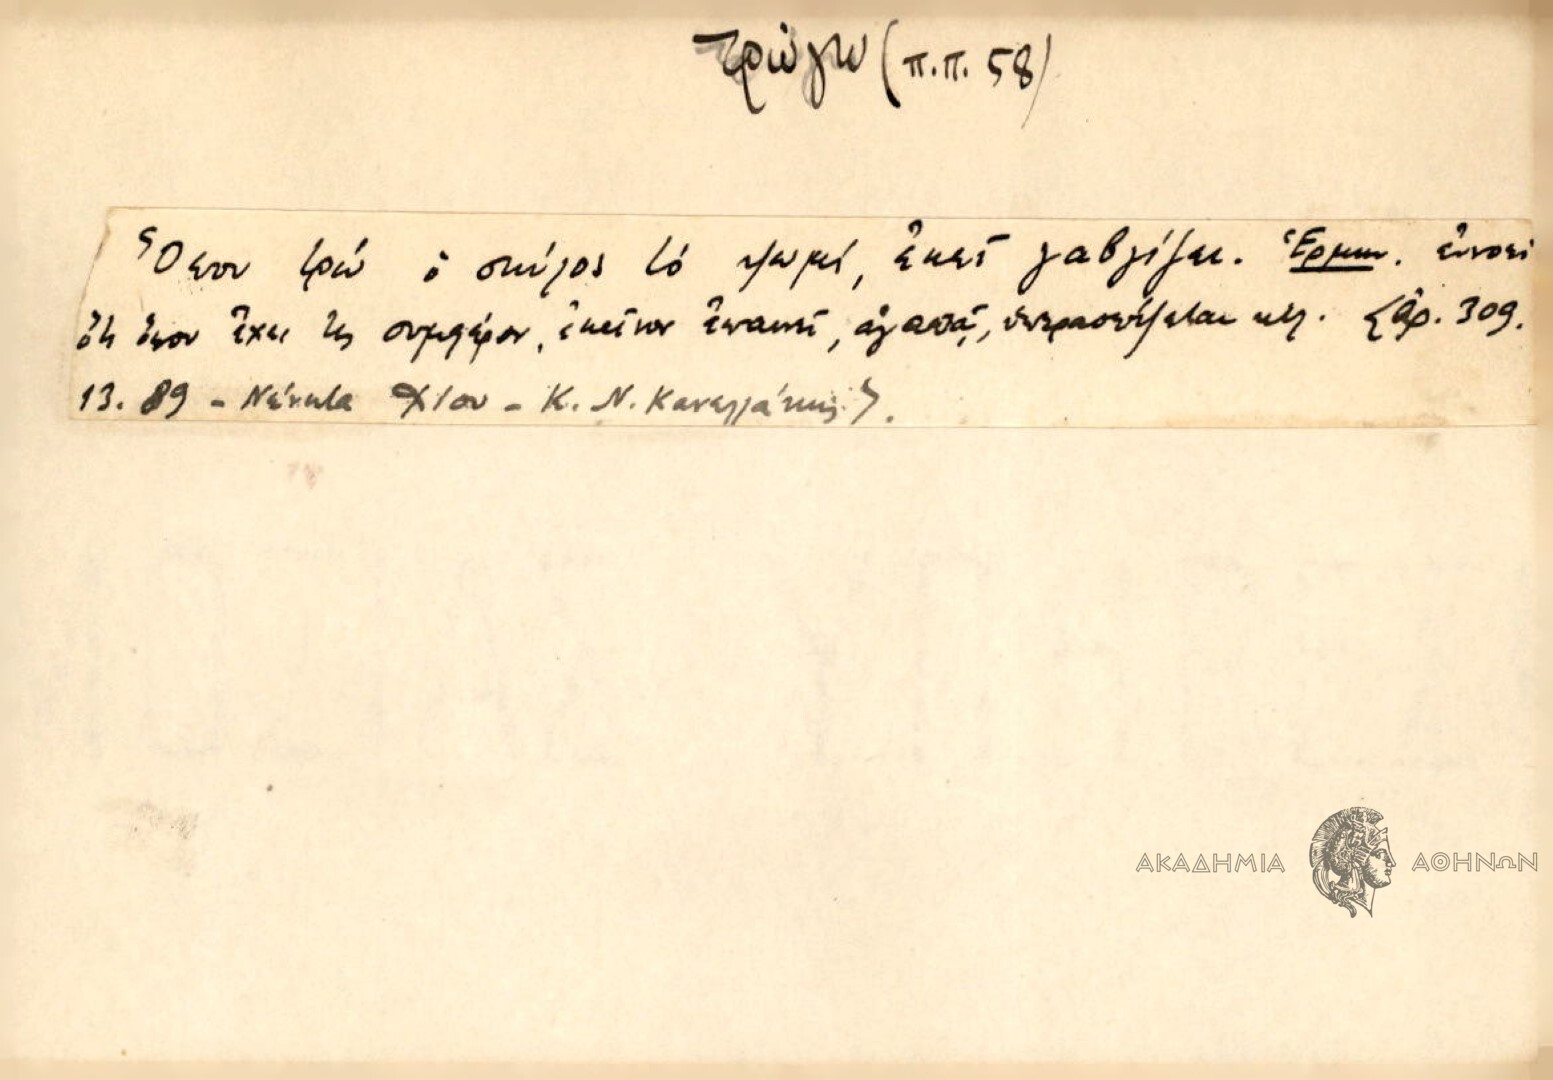 τρώγω (π.π. 58)
Ὅπου τρώ ὁ σκύλος τό ψωμί, ἐκεῖ γαβγίζει. Ἑρμην. ἐννοεῖ
ὅτι ὅπου ἔχει τις συμφέρον, ἐκεῖνον ἐπαινεῖ, ἀγαπᾷ, ὑπερασπίζεται κτλ. <ἀρ. 309.
13. 89 - Νένητα Χίου - Κ. Ν. Κανελλάκης>.
ΑΚΑΔΗΜΙΑ ΑΘΗΝΩΝ